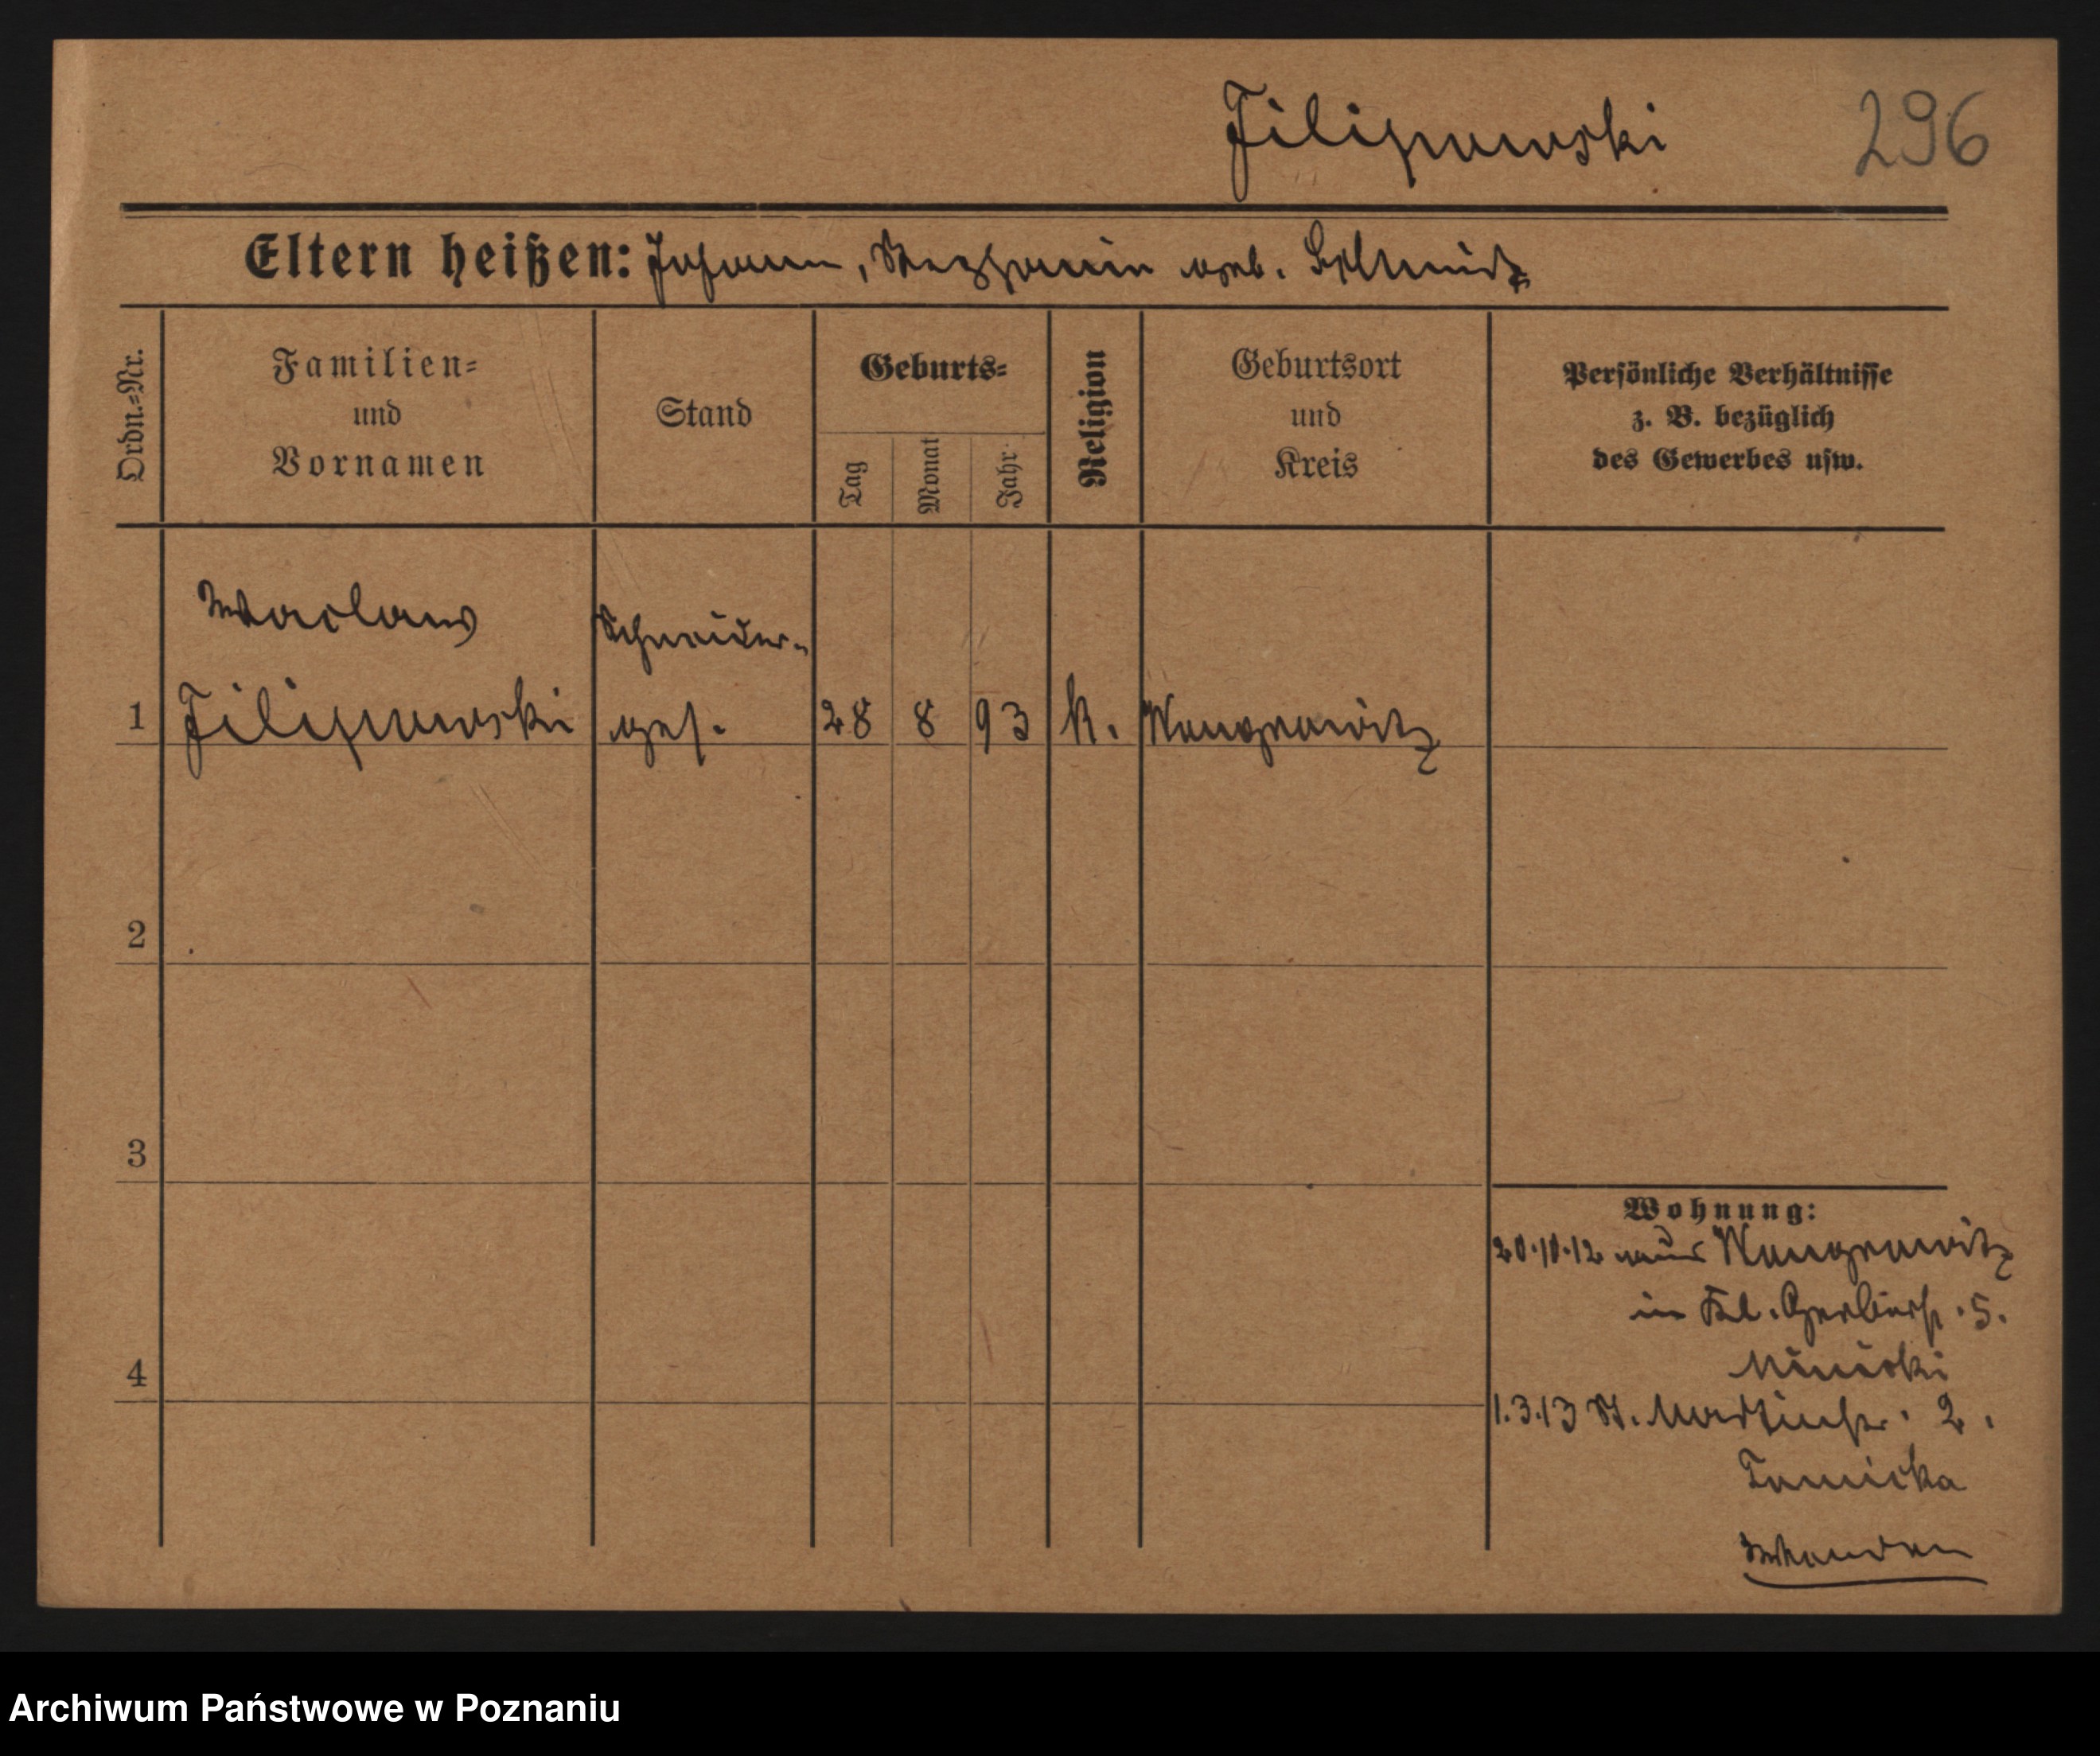 Filipowski 296
Eltern heißen: Johann, Stephanie geb. Schmidt
Ordn.=Nr.
Familien=
und
Vornamen
Stand
Geburts=
Tag
Monat
Jahr
Religion
Geburtsort
und
Kreis
Persönliche Verhältnisse
z. B. bezüglich
des Gewerbes usw.
Waclaw Schneider-
1 Filipowski ges. 28 8 93 k. Wongrowitz
2
3
Wohnung:
20.10.12 aus Wongrowitz
in Kl. Gerberstr. 5.
4
1.3.13 St. Martinstr. 2.
Tomicka
Archiwum Państwowe w Poznaniu